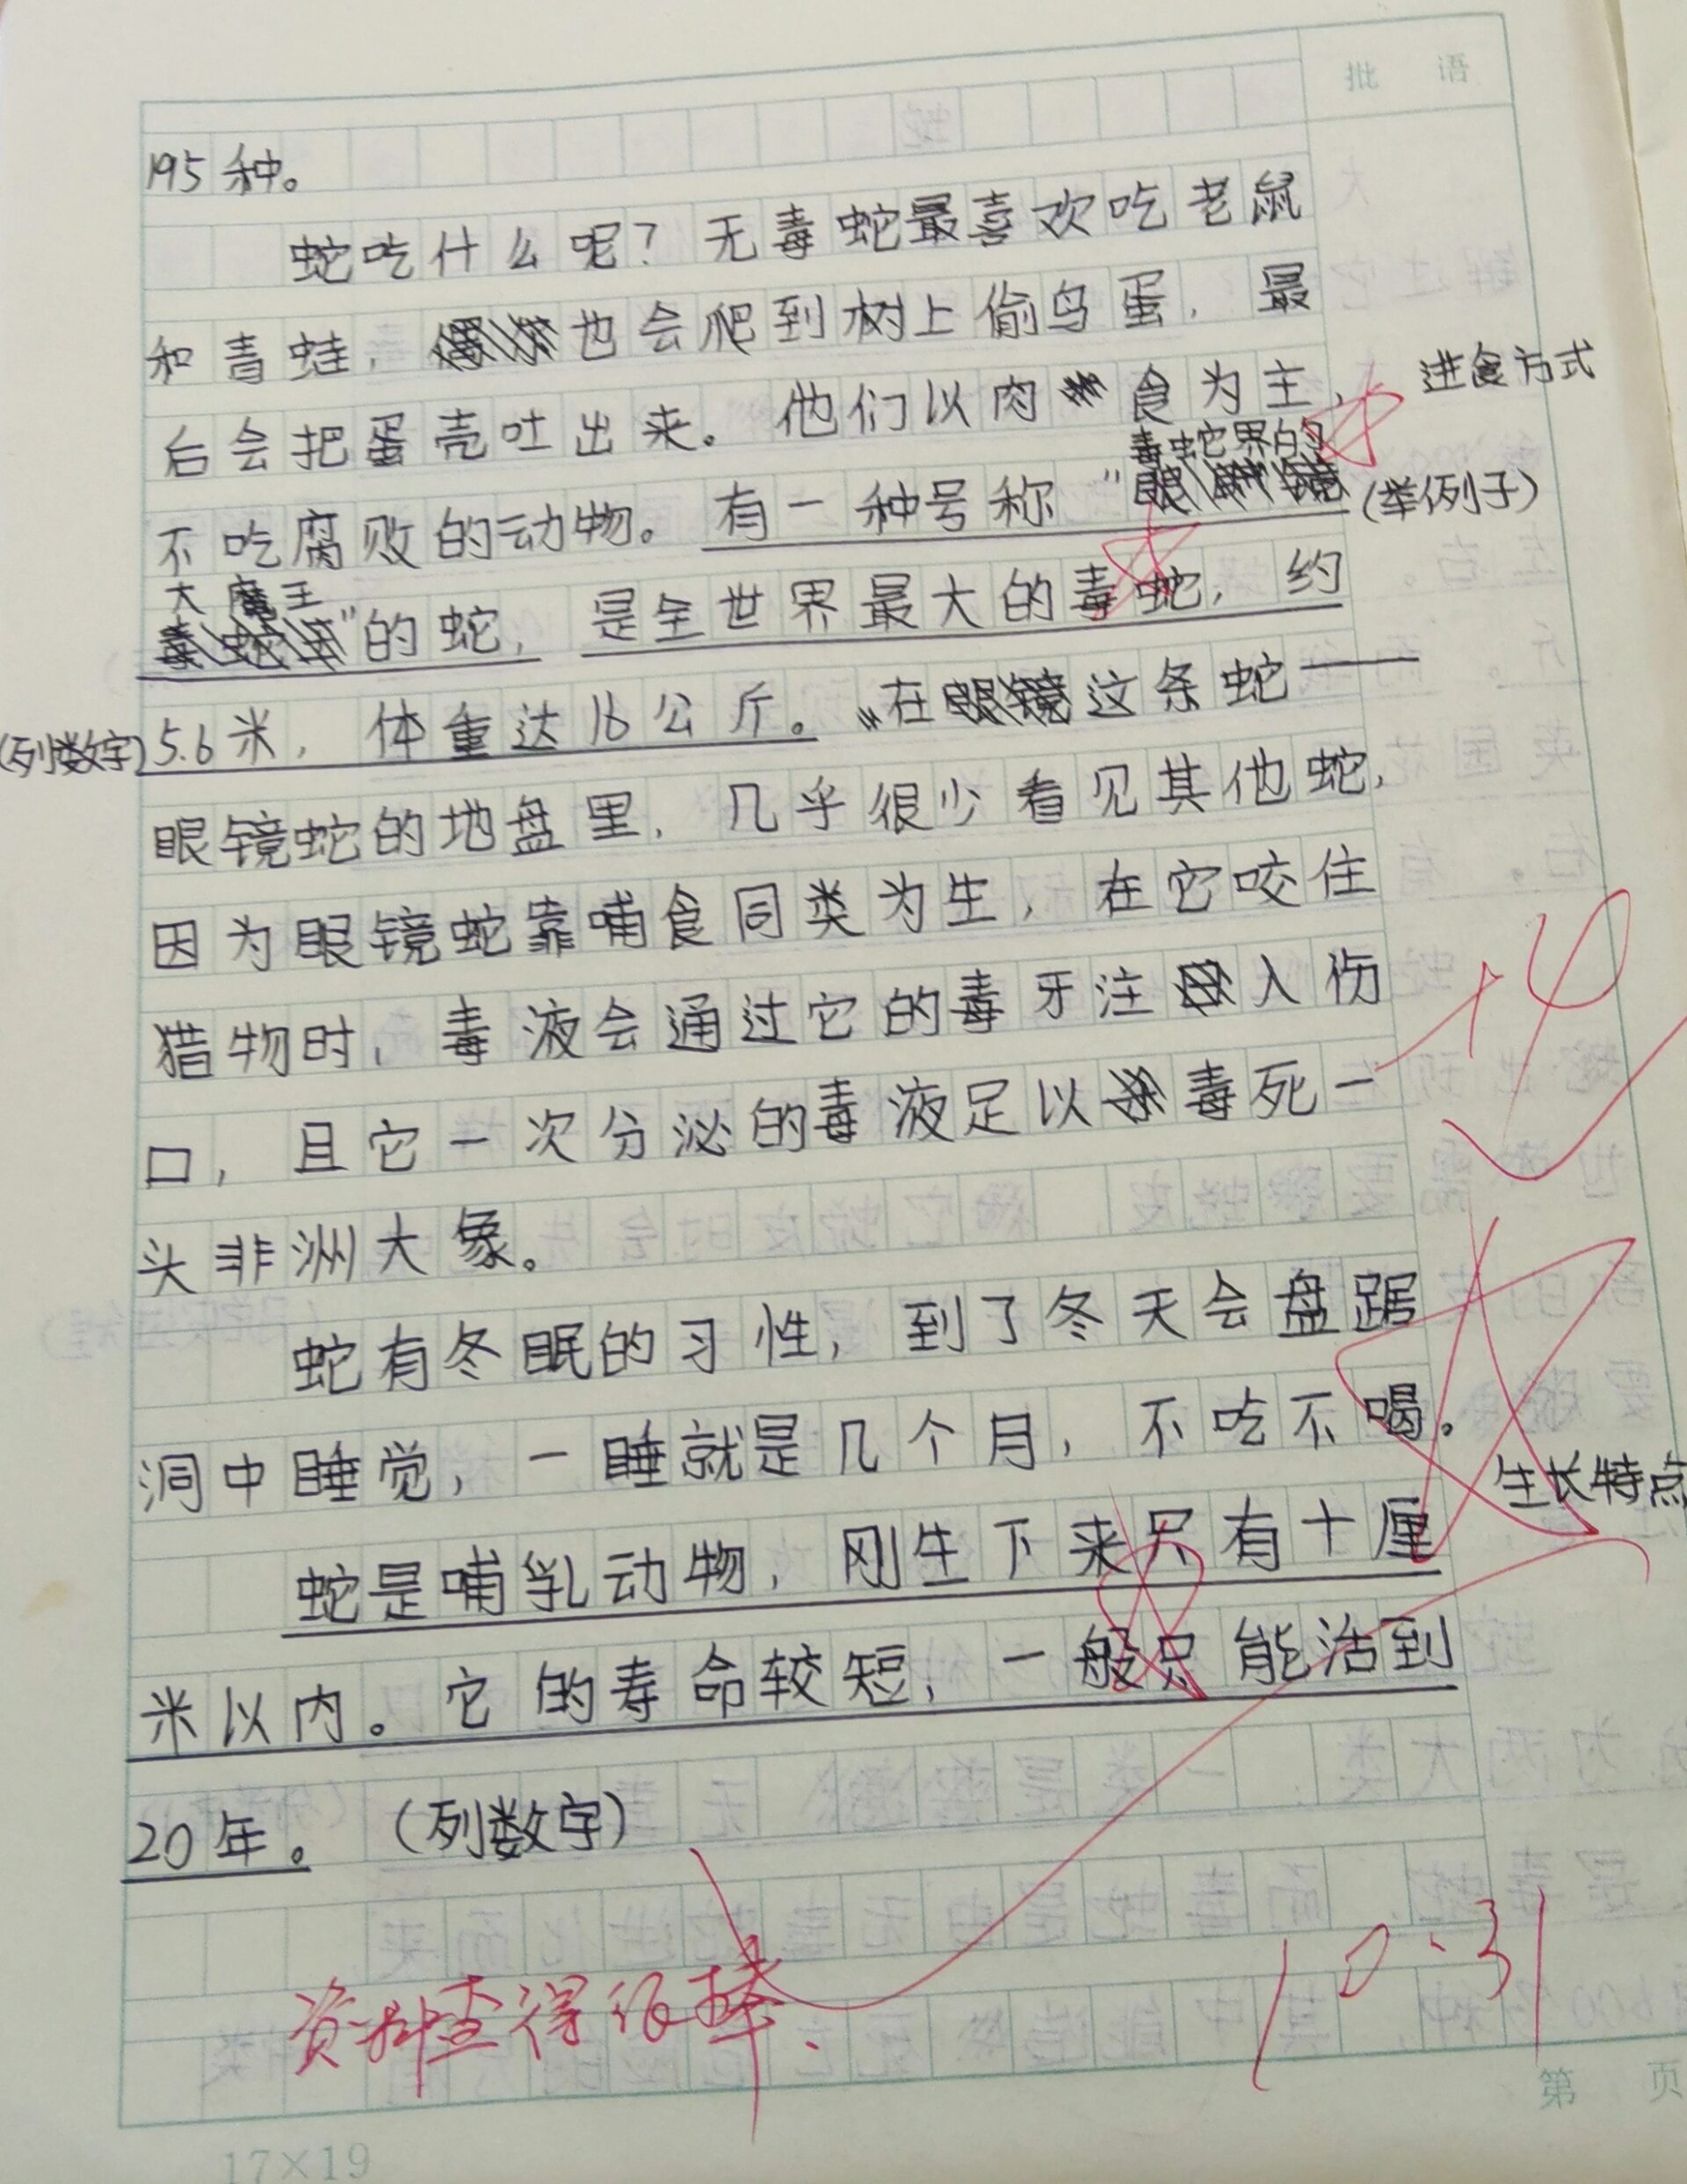 批 语
195种。
蛇吃什么呢？无毒蛇最喜欢吃老鼠
和青蛙，也会爬到树上偷鸟蛋，最
后会把蛋壳吐出来。他们以肉食为主，
进食方式
不吃腐败的动物。有一种号称“毒蛇界的
(举例子)
大魔王”的蛇，是全世界最大的毒蛇，约
(列数字)5.6米，体重达16公斤。在这条蛇——
眼镜蛇的地盘里，几乎很少看见其他蛇，
因为眼镜蛇靠哺食同类为生，在它咬住
猎物时，毒液会通过它的毒牙注入伤
口，且它一次分泌的毒液足以毒死一
头非洲大象。
蛇有冬眠的习性，到了冬天会盘踞
洞中睡觉，一睡就是几个月，不吃不喝。
生长特点
蛇是哺乳动物，刚生下来只有十厘
米以内。它的寿命较短，一般只能活到
20年。（列数字）
资料查得很棒。
10.31
第 页
17×19